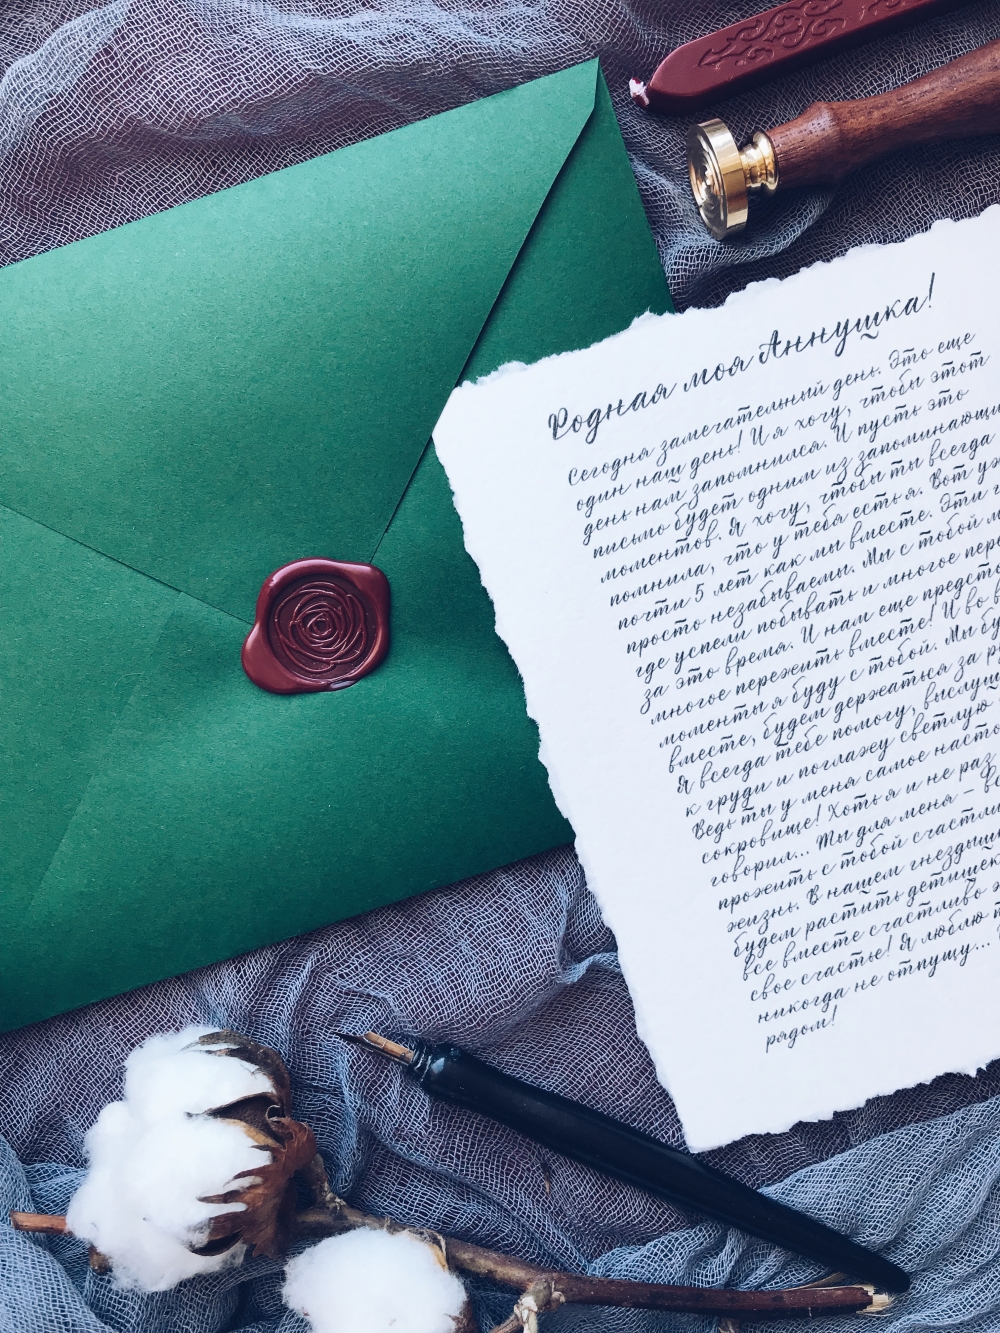 Родная моя Аннушка!
Сегодня замечательный день. Это еще
один наш день! И я хочу, чтобы этот
день нам запомнился. И пусть это
письмо будет одним из запоминающи
моментов. Я хочу, чтобы ты всегда
помнила, что у тебя есть я. Вот уж
почти 5 лет как мы вместе. Эти г
просто незабываемы. Мы с тобой м
где успели побывать и многое пере
за это время. И нам еще предсто
многое пережить вместе! И во в
моменты я буду с тобой. Мы бу
вместе, будем держаться за ру
Я всегда тебе помогу, выслуш
к груди и поглажу светлую
Ведь ты у меня самое насто
сокровище! Хоть я и не раз
говорил... Ты для меня - вс
прожить с тобой счастли
жизнь. В нашем гнездышк
будем растить детишек
все вместе счастливо ж
свое счастье! Я люблю т
никогда не отпущу...
рядом!